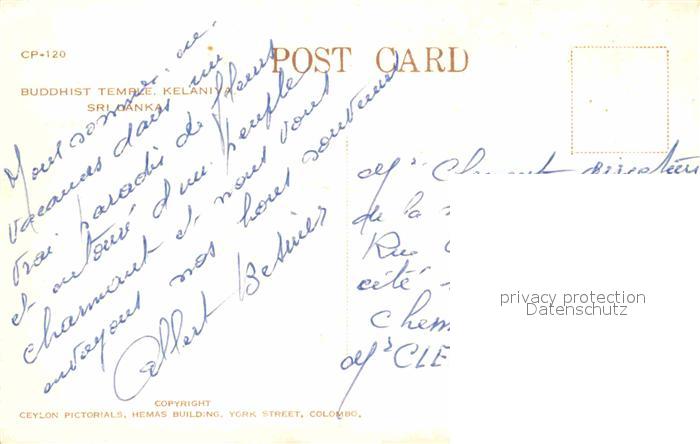 CP-120
POST CARD
BUDDHIST TEMPLE, KELANIYA.
SRI LANKA
Nous sommes en
vacances dans un
vrai paradis de fleurs
et entouré d'un peuple
charmant et nous vous
envoyons nos bons souvenirs
Albert
Mr Clement directeur
de la
Rue
cité
Chem
Mr CLE
privacy protection
Datenschutz
COPYRIGHT
CEYLON PICTORIALS, HEMAS BUILDING, YORK STREET, COLOMBO.